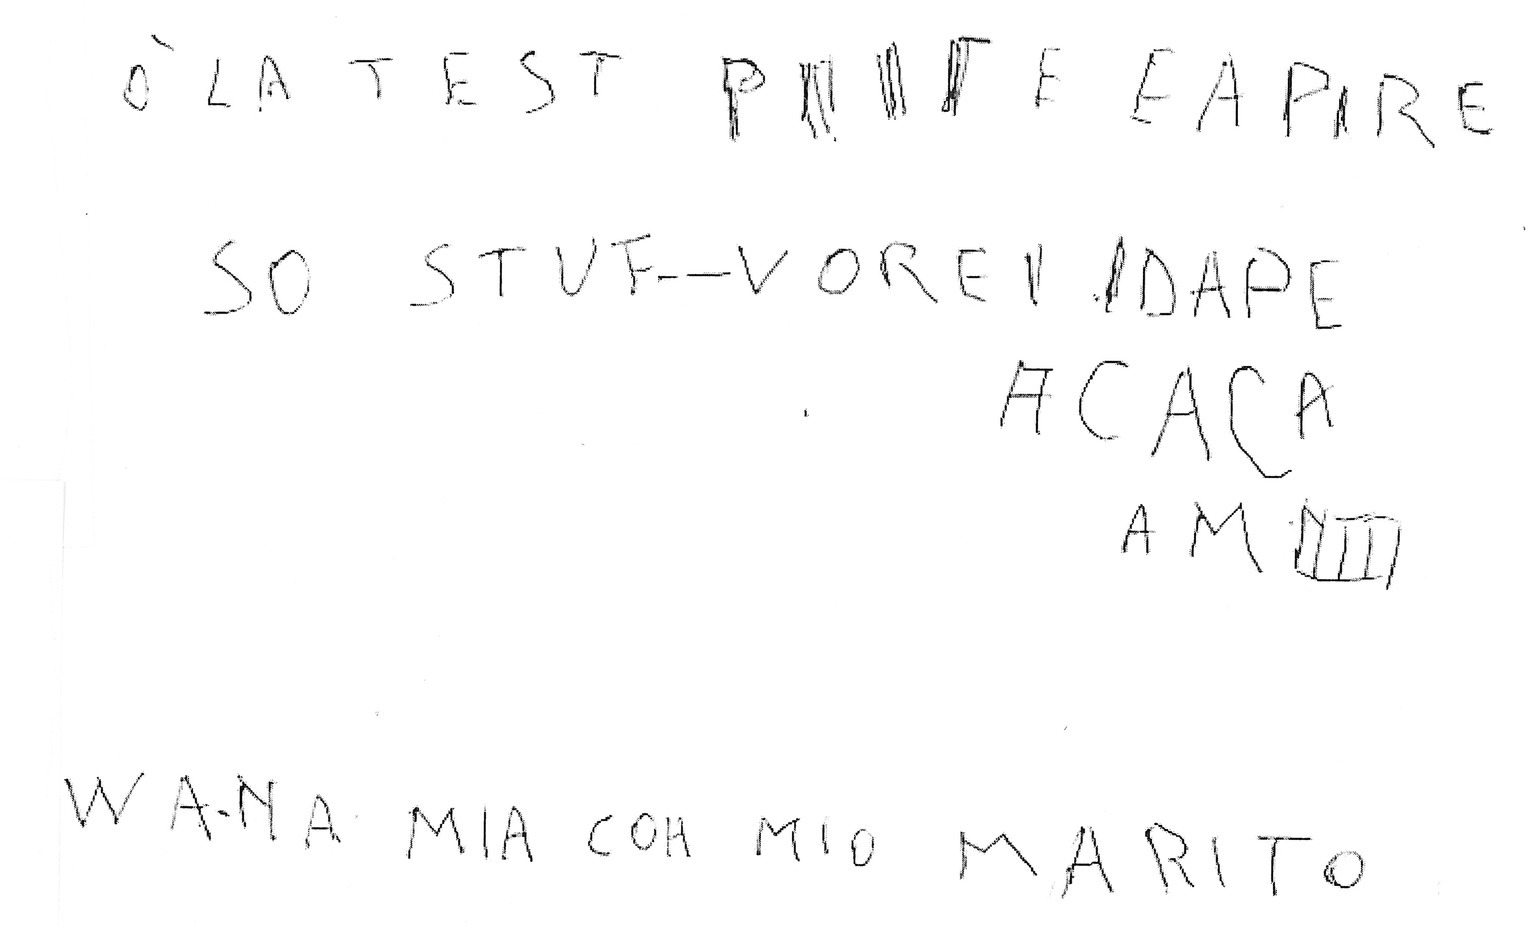 Ò LA TEST P TE E A PIRE
SO STUF--VOREI IDAPE
ACACA
AM
WA.NA MIA COH MIO MARITO